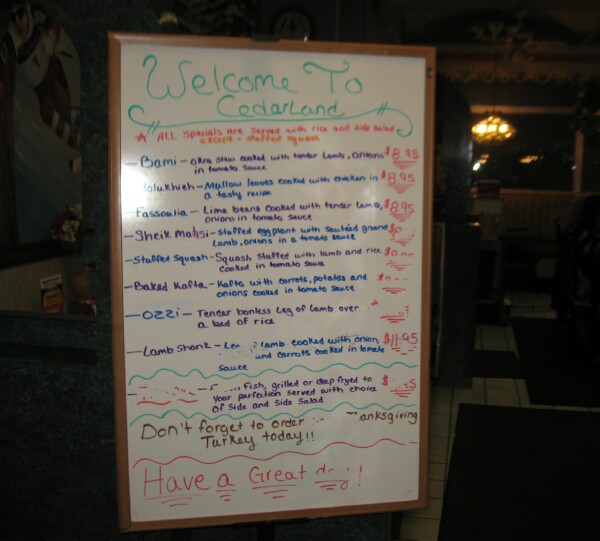 Welcome To
Cedarland
★ ALL specials are served with rice and side salad
except - stuffed squash
- Bami - okra stew cooked with tender Lamb, onions $8.95
in tomato sauce
Mallow leaves cooked with chicken in $8.95
a tasty recipe
- Fassoulia - Lima beans cooked with tender lamb, $8.95
onions in tomato sauce
- Sheik Mahsi - Stuffed eggplant with sauteéd ground
Lamb, onions in a tomato sauce
- Stuffed Squash - Squash stuffed with lamb and rice
cooked in tomato sauce
- Baked Kafta - Kafta with carrots, potatos and
onions cooked in tomato sauce
- OZZI - Tender bonless Leg of Lamb over
a bed of rice
- Lamb Shank - lamb cooked with onion $11.95
and carrots cooked in tomato
sauce
Fish, grilled or deep fryed to
your perfection served with choice
of Side and Side Salad
Don't forget to order
Turkey today!!
Have a Great